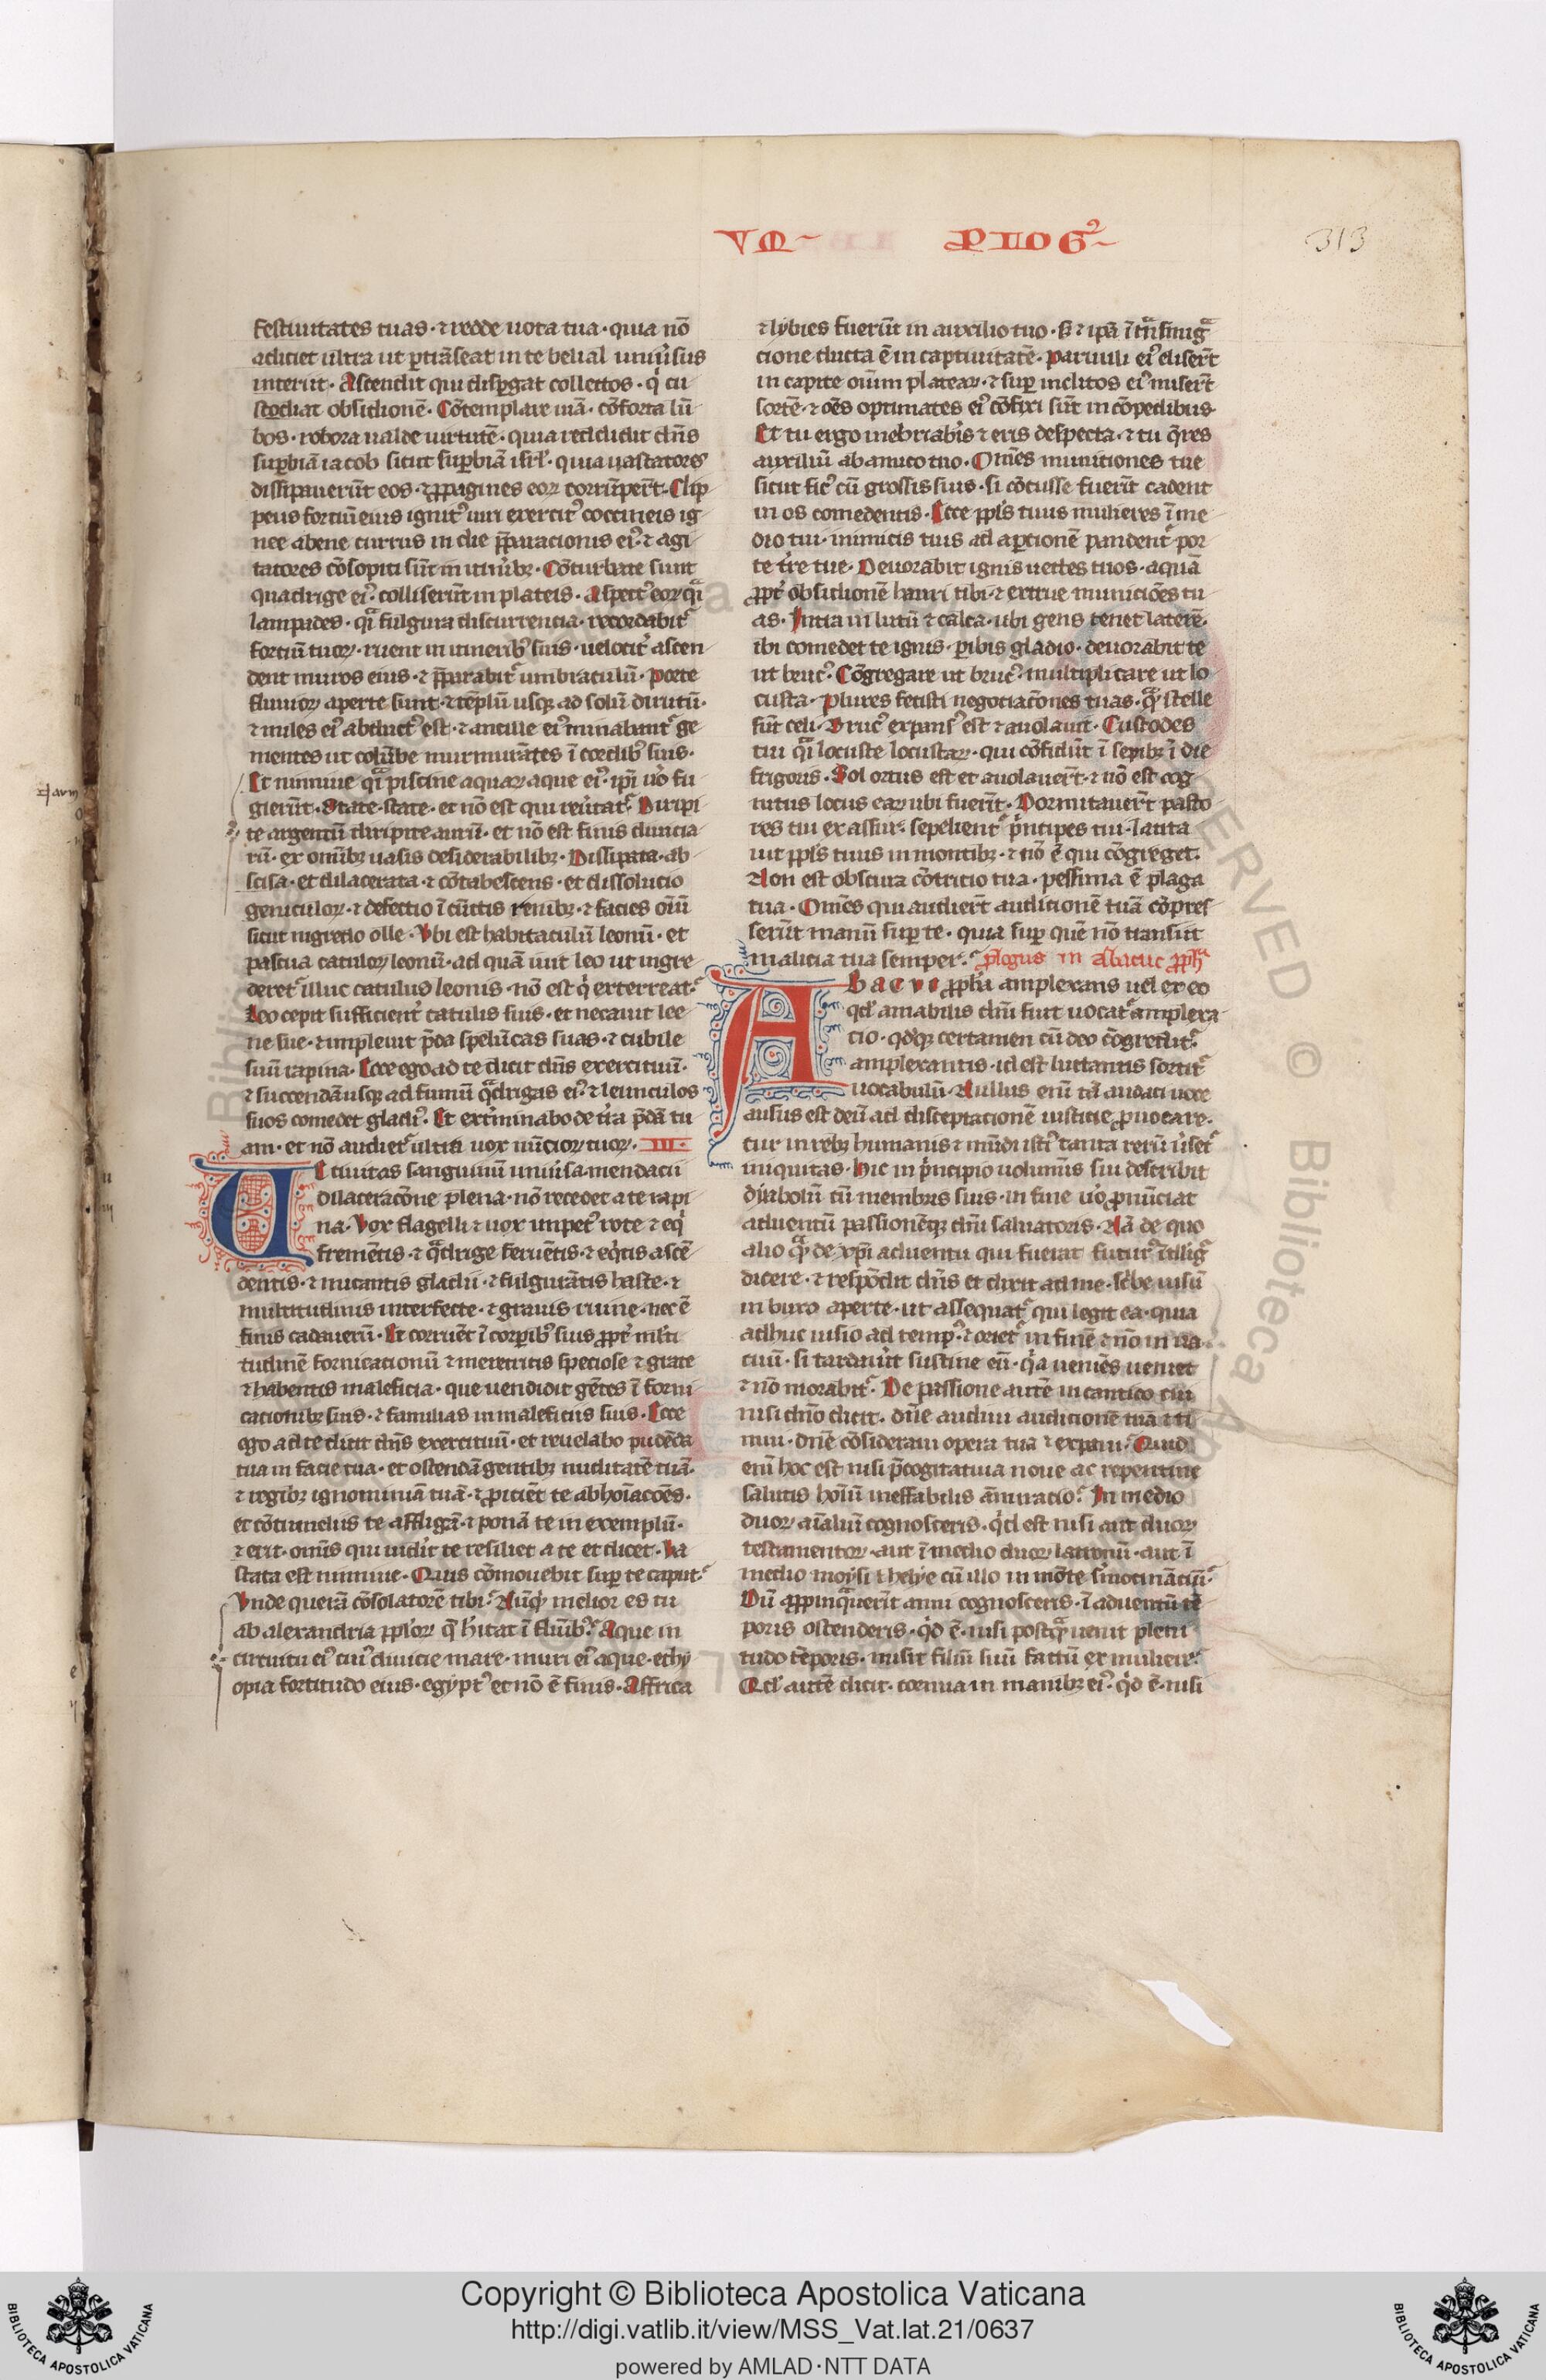 VM
PLOG
313
festiuitates tuas · ⁊ redde uota tua · quia nō
adiciet ultra ut ꝑtrāseat in te belial uniu̓sus
interiit · Ascendit qui disꝑgat collectos · q̇ cu
stodiat obsidionē · Cōtemplare uiā · cōforta lū
bos · robora ualde uirtutē · quia reddidit dn̄s
suꝑbiā iacob sicut suꝑbiā isrl̓ · quia uastatores
dissipauerūt eos · ⁊ ꝓpagines eoꝝ corrūpert̄ · Clip
peus fortiū eius ignit᾽ uiri exercit᾽ coccineis ig
nee abene currus in die p̄paracionis ei᾽ · ⁊ agi
tatores cōsopiti sūt in itinibꝫ · Cōturbate sunt
quadrige ei᾽ · colliserūt in plateis · Aspect᾽ eoꝝ qͣi
lampades · qͣi fulgura discurrencia · recordabit᷑
fortiū tuoꝝ · ruent in itinerib᾽ suis · uelocit̓ ascen
dent muros eius · ⁊ p̄parabit᷑ umbraculū · Porte
fluuioꝝ aperte sunt · ⁊ tēplū usqꝫ ad solū dirutū ·
⁊ miles ei᾽ abduct᾽ est · ⁊ ancille ei᾽ minabant᷑ ge
mentes ut colūbe murmurātes ī cordib᾽ suis ·
Et niniue qͣi piscine aquaꝝ aque ei᾽ · ip̄i u̓o fu
gierūt · State · state · et nō est qui reu̓tat᷑ · Diripi
te argentū diripite aurū · et nō est finis diuicia
rū · ex omībꝫ uasis desiderabilibꝫ · Dissipata · ab
scisa · et dilacerata · ⁊ cōtabescens · et dissolucio
geniculoꝝ · ⁊ defectio ī cūctis renibꝫ · ⁊ facies oīū
sicut nigredo olle · Vbi est habitaculū leonū · et
pascua catuloꝝ leonū · ad quā iuit leo ut ingre
deret᷑ illuc catulus leonis · nō est q̇ exterreat᷑
Leo cepit sufficient̓ catulis suis · et necauit lee
ne sue · ⁊ impleuit p̄da spelūcas suas · ⁊ cubile
suū rapina · Ecce ego ad te dicit dn̄s exercituū ·
⁊ succendā usqꝫ ad fumū qͣdrigas ei᾽ · ⁊ leunculos
tuos comedet gladi᾽ · Et extīnabo de t̓ra p̄dā tu
am · et nō audiet᷑ ultra uox nūcioꝝ tuoꝝ · III ·
Ue ciuitas sanguinū uniu̓sa mendacii
dilaceracōne plena · nō recedet a te rapi
na · Vox flagelli ⁊ uox impet᾽ rote ⁊ eq̇
frementis · ⁊ qͣdrige feruētis · ⁊ eq̇tis ascē
dentis · ⁊ micantis gladii · ⁊ fulgurātis haste · ⁊
multitudinis interfecte · ⁊ grauis ruine · nec ē
finis cadauerū · Et corruēt ī corꝑib᾽ suis ꝓpt̓ ml̓ti
tudinē fornicationū ⁊ meretricis speciose ⁊ grate
⁊ habentis maleficia · que uendidit gētes ī forni
cationibꝫ suis · ⁊ familias in maleficiis suis · Ecce
ego ad te dicit dn̄s exercituū · et reuelabo pudēda
tua in facie tua · et ostendā gentibꝫ nuditatē tuā ·
⁊ regibꝫ ignominiā tuā · ⁊ ꝓiciēt te abhoīacōes ·
et cōtumeliis te affligā · ⁊ ponā te in exemplū ·
⁊ erit · omīs qui uid̓it te resiliet a te et dicet · Va
stata est niniue · Quis cōmouebit suꝑ te caput᷑
Vnde querā cōsolatorē tibi᷑ Nūqͥd melior es tu
ab alexandria ppl̓oꝝ q̄ h̓itat ī flūib᾽᷑ Aque in
circuitu ei᾽ cui᾽ diuicie mare · muri ei᾽ aque · ethy
opia fortitudo eius · egypt᾽ et nō ē finis · Affrica
⁊ lybies fuerūt in auxilio tuo · Sꝫ ⁊ ip̄a ī trͣnsmigͣ
cione ducta ē in captiuitatē · Paruuli ei᾽ eliser̄t
in capite oīum plateaꝝ · ⁊ suꝑ inclitos ei᾽ miser̄t
sortē · ⁊ oēs optimates ei᾽ cōfixi sūt in cōpedibus
Et tu ergo inebriab̓is ⁊ eris despecta · ⁊ tu q̄res
auxiliū ab amico tuo · Omēs municiones tue
sicut fic᾽ cū grossis suis · si cōcusse fuerīt cadent
in os comedentis · Ecce ppl̓s tuus mulieres ī me
dio tui · inimicis tuis ad aꝑtionē pandent᷑ por
te t̓re tue · Deuorabit ignis uectes tuos · aquā
ꝓpt̓ obsidionē hauri tibi · ⁊ extrue municiōes tu
as · Intra in lutū ⁊ calca · ubi gens tenet laterē ·
ibi comedet te ignis · ꝑibis gladio · deuorabit te
ut bruc᾽ · Cōgregare ut bruc᾽ · multiplicare ut lo
custa · Plures fecisti negotiacōnes tuas · qͣꝫ stelle
sūt celi · Bruc᾽ expans᾽ est ⁊ auolauit · Custodes
tui qͣi locuste locustaꝝ · qui cōsidūt ī sepibꝫ ī die
frigoris · Sol ortus est et auolauer̄t · ⁊ nō est cog
nitus locus eaꝝ ubi fuerīt · Dormitauer̄t pasto
res tui rex assur · sepelient᷑ p̓ncipes tui · latita
uit ppl̓s tuus in montibꝫ · ⁊ nō ē qui cōgreget ·
Non est obscura cōtricio tua · pessima ē plaga
tua · Omēs qui audier̄t audicionē tuā cōpres
serūt manū suꝑ te · quia suꝑ quē nō transiit
malicia tua semper᷑ · ꝓlogus in Abacuc ꝓph̄a
ABACVC ꝓph̄a amplexans uel ex eo
qd̓ amabilis dn̄i fuit uocat᷑ amplexa
cio · qd̓qꝫ certamen cū deo cōgredit᷑
amplexantis · id est luctantis sortit᷑
uocabulū · Nullus enī tā audaci uoce
ausus est deū ad disceptacionē iusticie ꝓuocare ·
cur in rebꝫ humanis ⁊ mūdi ist᾽ tanta rerū u̓set᷑
iniquitas · Hic in p̓ncipio uoluminis sui describit
dyabolū cū membris suis · in fine u̓o ꝓnūciat
aduentū passionēqꝫ dn̄i saluatoris · Nā de quo
alio qͣꝫ de xp̄i aduentu qui fuerat futur᾽ ītlligͣ
dicere · ⁊ respōdit dn̄s et dixit ad me · sc̓be uisū
in buxo aperte · ut assequat᷑ qui legit ea · quia
adhuc uisio ad temp᾽ · ⁊ oriet᷑ in finē ⁊ nō in ua
cuū · si tardau̓it sustine eū · q̓a ueniēs ueniet
⁊ nō morabit᷑ · De passione autē in cantico cui
nisi dn̄o dicit · dn̄e audiui audicionē tuā ⁊ ti
mui · dn̄e cōsideraui opera tua ⁊ expaui · Quid
enī hoc est nisi p̄cogitatiua noue ac repentine
salutis hoīū ineffabilis āmiracio᷑ In medio
duoꝝ aīaliū cognosceris · q̇d est nisi aut duoꝝ
testamentoꝝ · aut ī medio duoꝝ latronū · aut ī
medio moysi ⁊ helye cū illo in mōte s̓mocinātiū᷑
Dū appinqͣuerīt anni cognosceris · ī aduentū tē
poris ostenderis · q̇d ē · nisi postqͣ uenit pleni
tudo tēporis · misit filiū suū factū ex muliere᷑
Qd̓ autē dicit · cornua in manibꝫ ei᾽ · q̇d ē · nisi
Copyright © Biblioteca Apostolica Vaticana
http://digi.vatlib.it/view/MSS_Vat.lat.21/0637
powered by AMLAD·NTT DATA
BIBLIOTECA APOSTOLICA VATICANA
BIBLIOTECA APOSTOLICA VATICANA